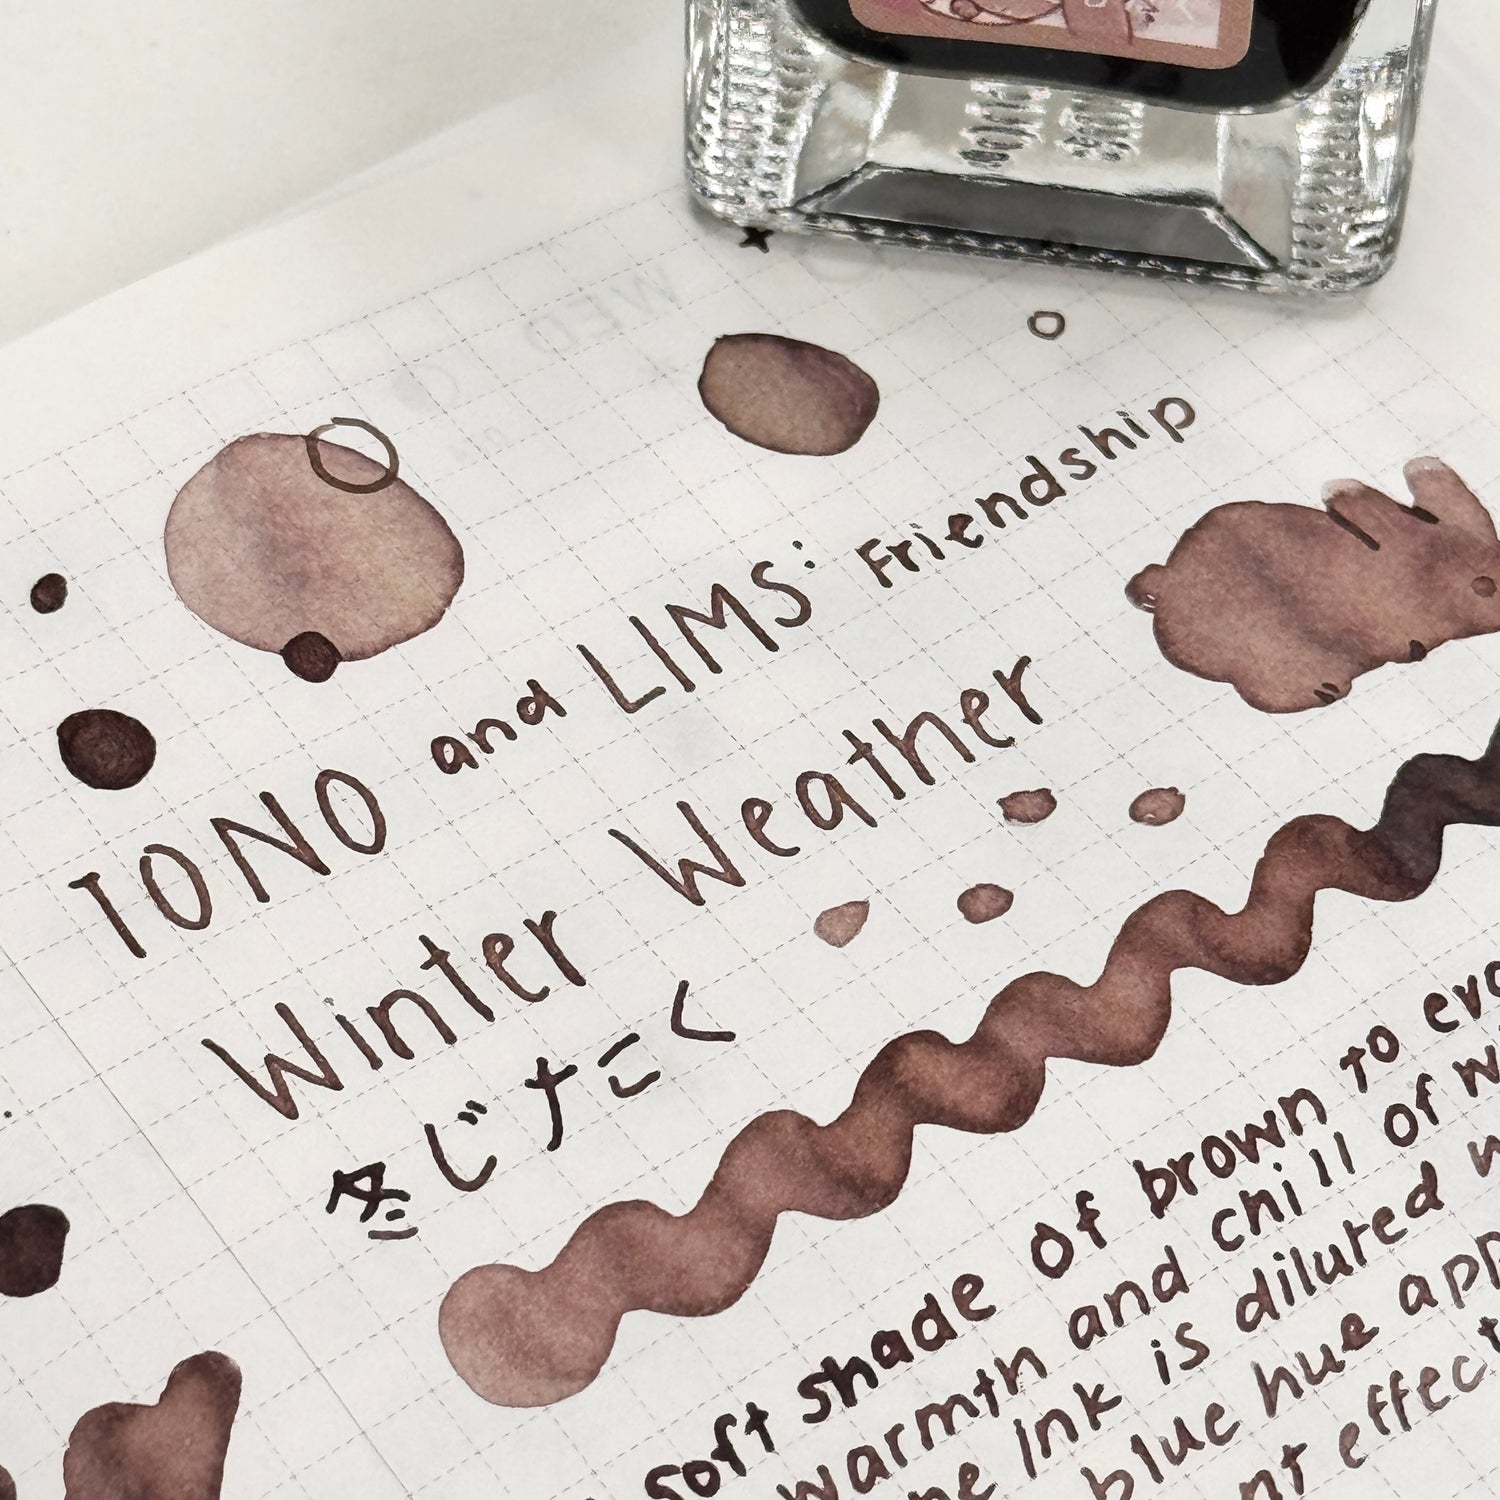 TONO and LIMS: Friendship
Winter Weather
冬じたく
soft shade of brown to
warmth and chill of
ink is diluted
blue hue
effect
WED